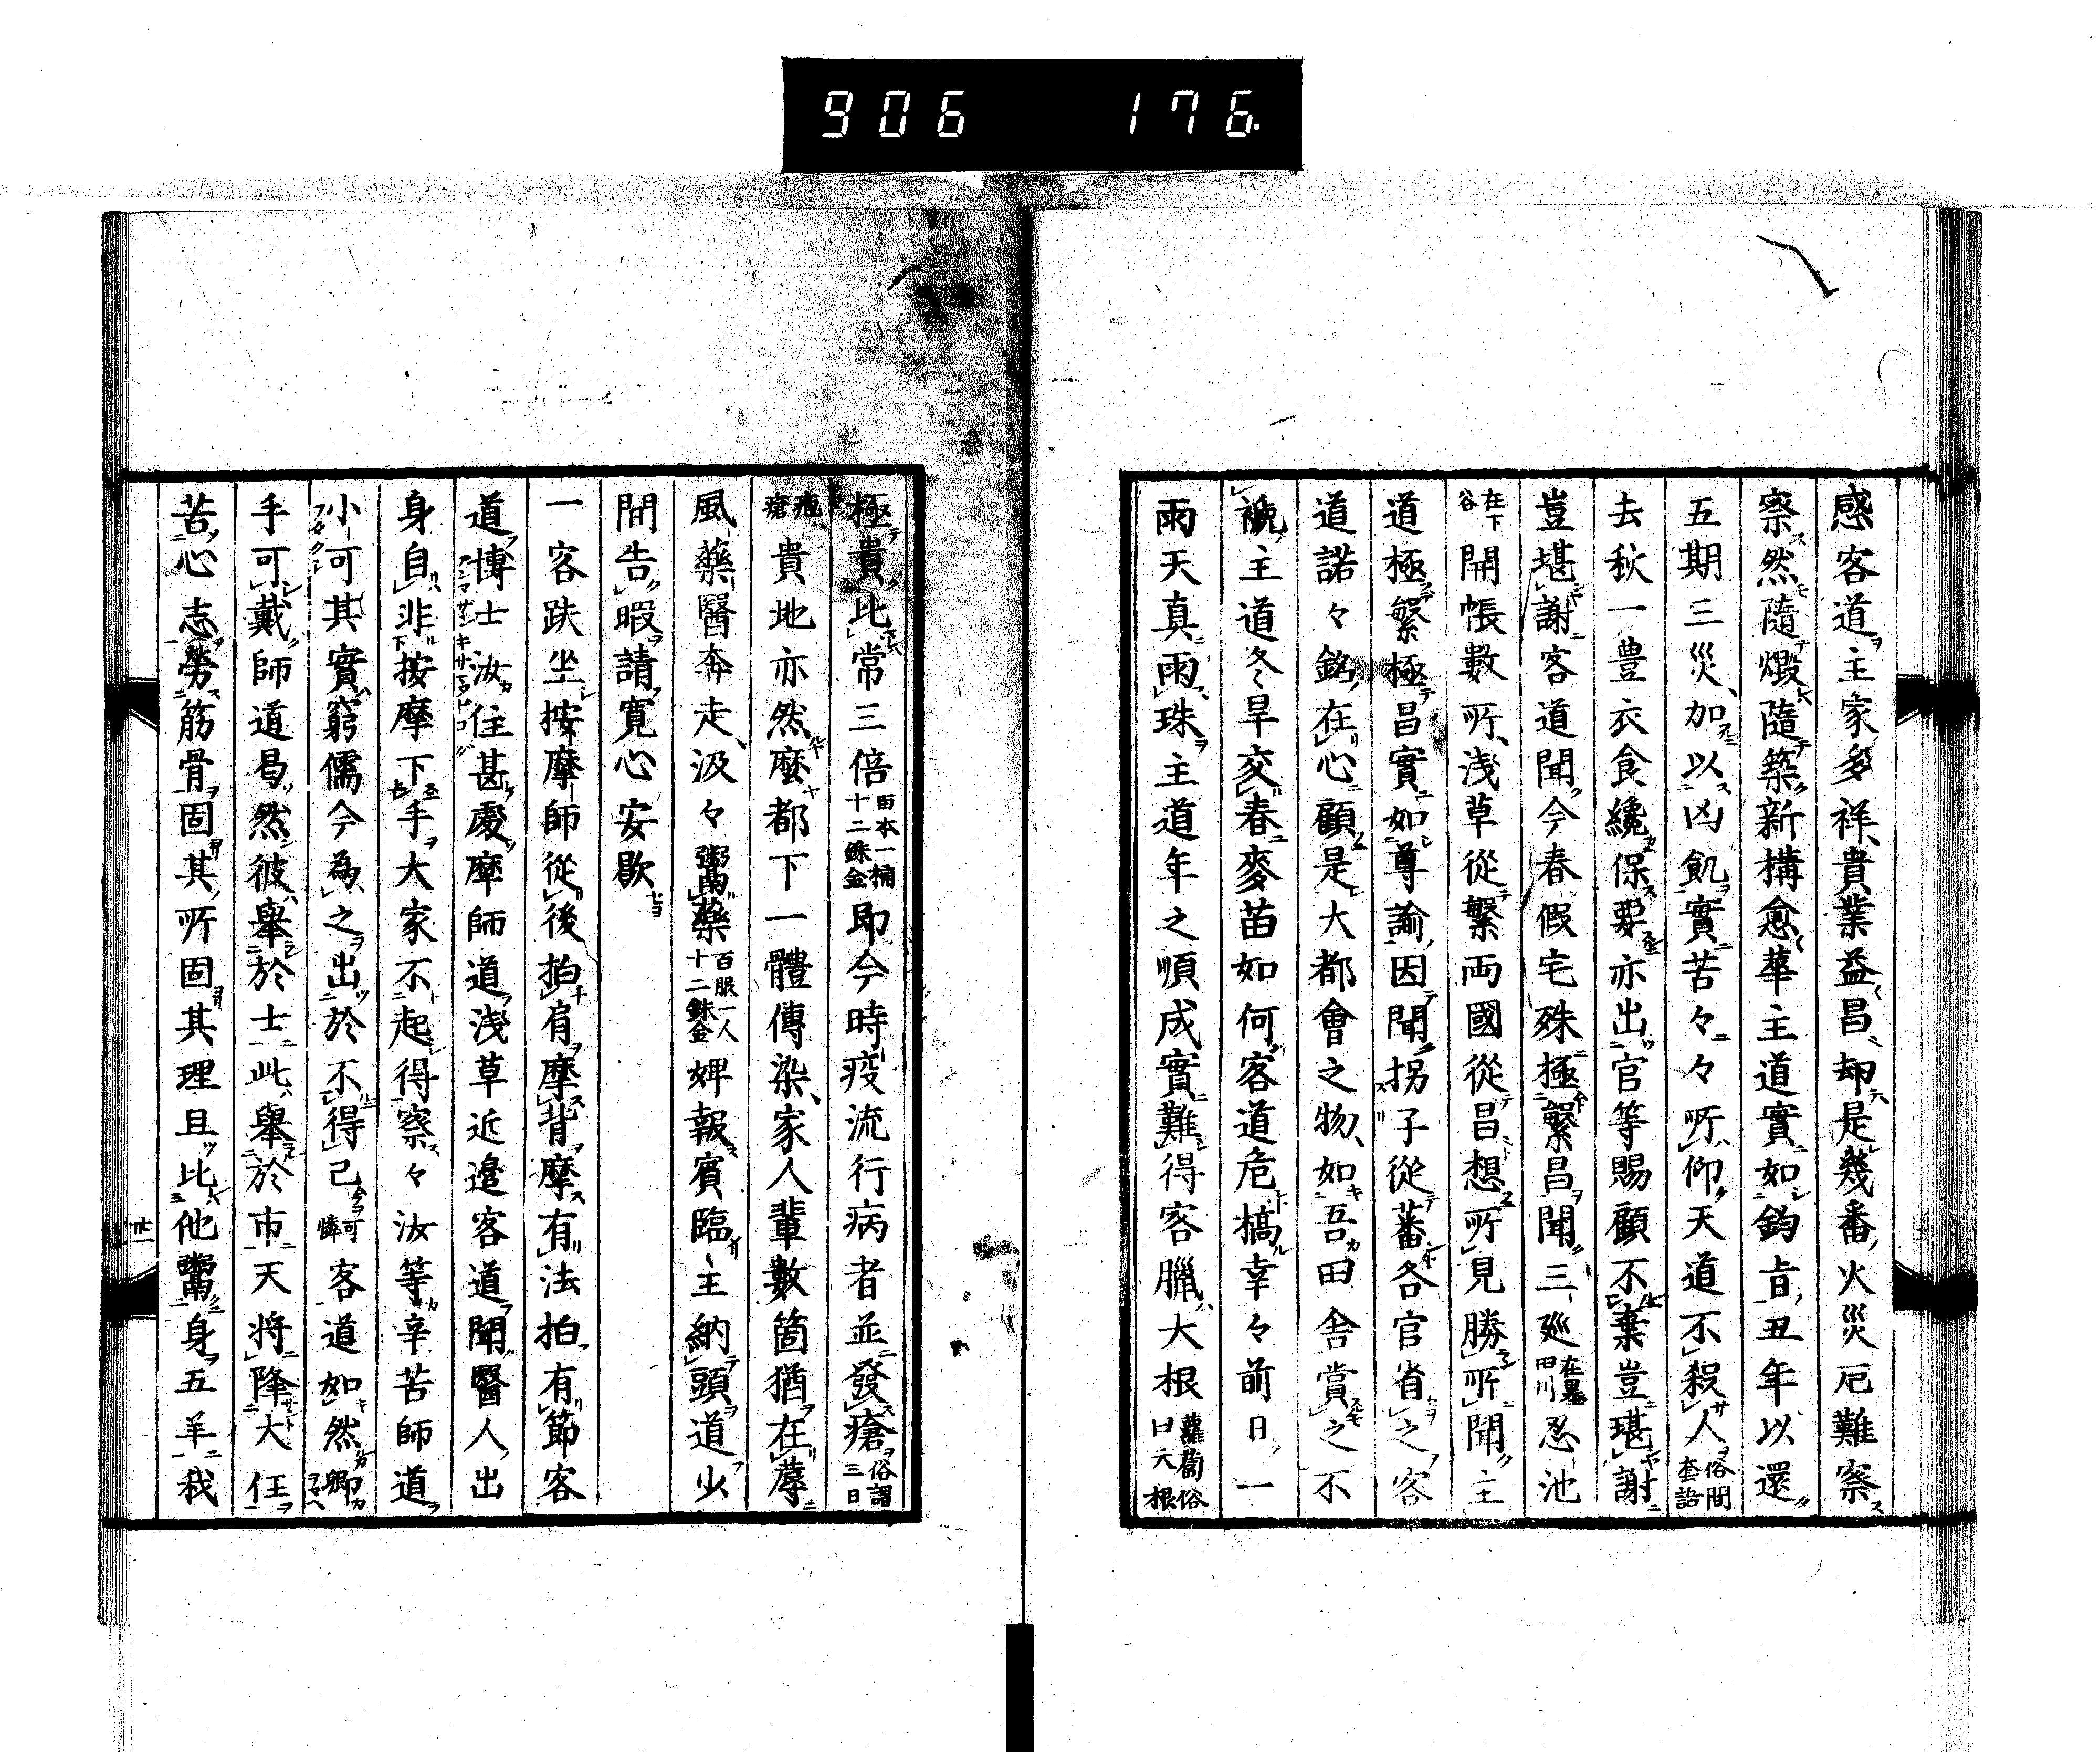 906 176
感客道主家多祥貴業益昌却是幾番火災厄難察
察然隨燬隨築新構愈華主道實如鈞旨丑年以還
五期三災加以凶飢實苦々々所仰天道不殺人俗間套語
去秋一豊衣食纔保要亦出官等賜顧不棄豈堪謝
豈堪謝客道聞今春假宅殊極繁昌聞三廵在墨田川忍池
在下谷開帳數所淺草從繁両國從昌想所見勝所聞主
道極繁極昌實如尊諭因聞拐子從蕃各官省之客
道諾々銘在心顧是大都會之物如吾田舎賞之不
褫主道冬旱交春麥苗如何客道危槁幸々前日一
雨天真雨珠主道年之順成實難得客臘大根蘿蔔俗曰大根
極貴比常三倍百本一桶十二銖金即今時疫流行病者並發瘡俗謂三日
疱瘡貴地亦然麼都下一體傳染家人輩數箇猶在蓐
風藥醫奔走汲々粥藥百服一人十二銖金婢報賓臨主納頭道少
間告暇請寬心安歇
一客趺坐按摩師從後拍肩摩背摩有法拍有節客
道博士汝住甚處摩師道淺草近邉客道聞醫人出
身自非按摩下手大家不起得察々汝等辛苦師道
小可其實窮儒今為之出於不得已可憐客道如然卿
手可戴師道曷然彼舉於士此舉於市天將降大任
苦心志勞筋骨固其所固其理且比他鬻身五羊我